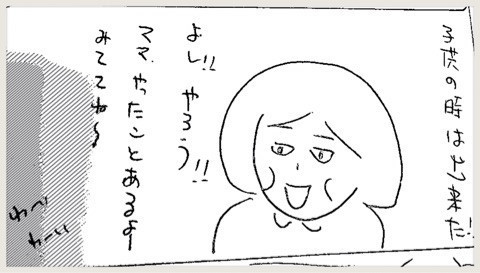 子供の時は出来た!
よし!! やろう!!
ママ、やったことあるよー
みててね〜
わーい
わーい